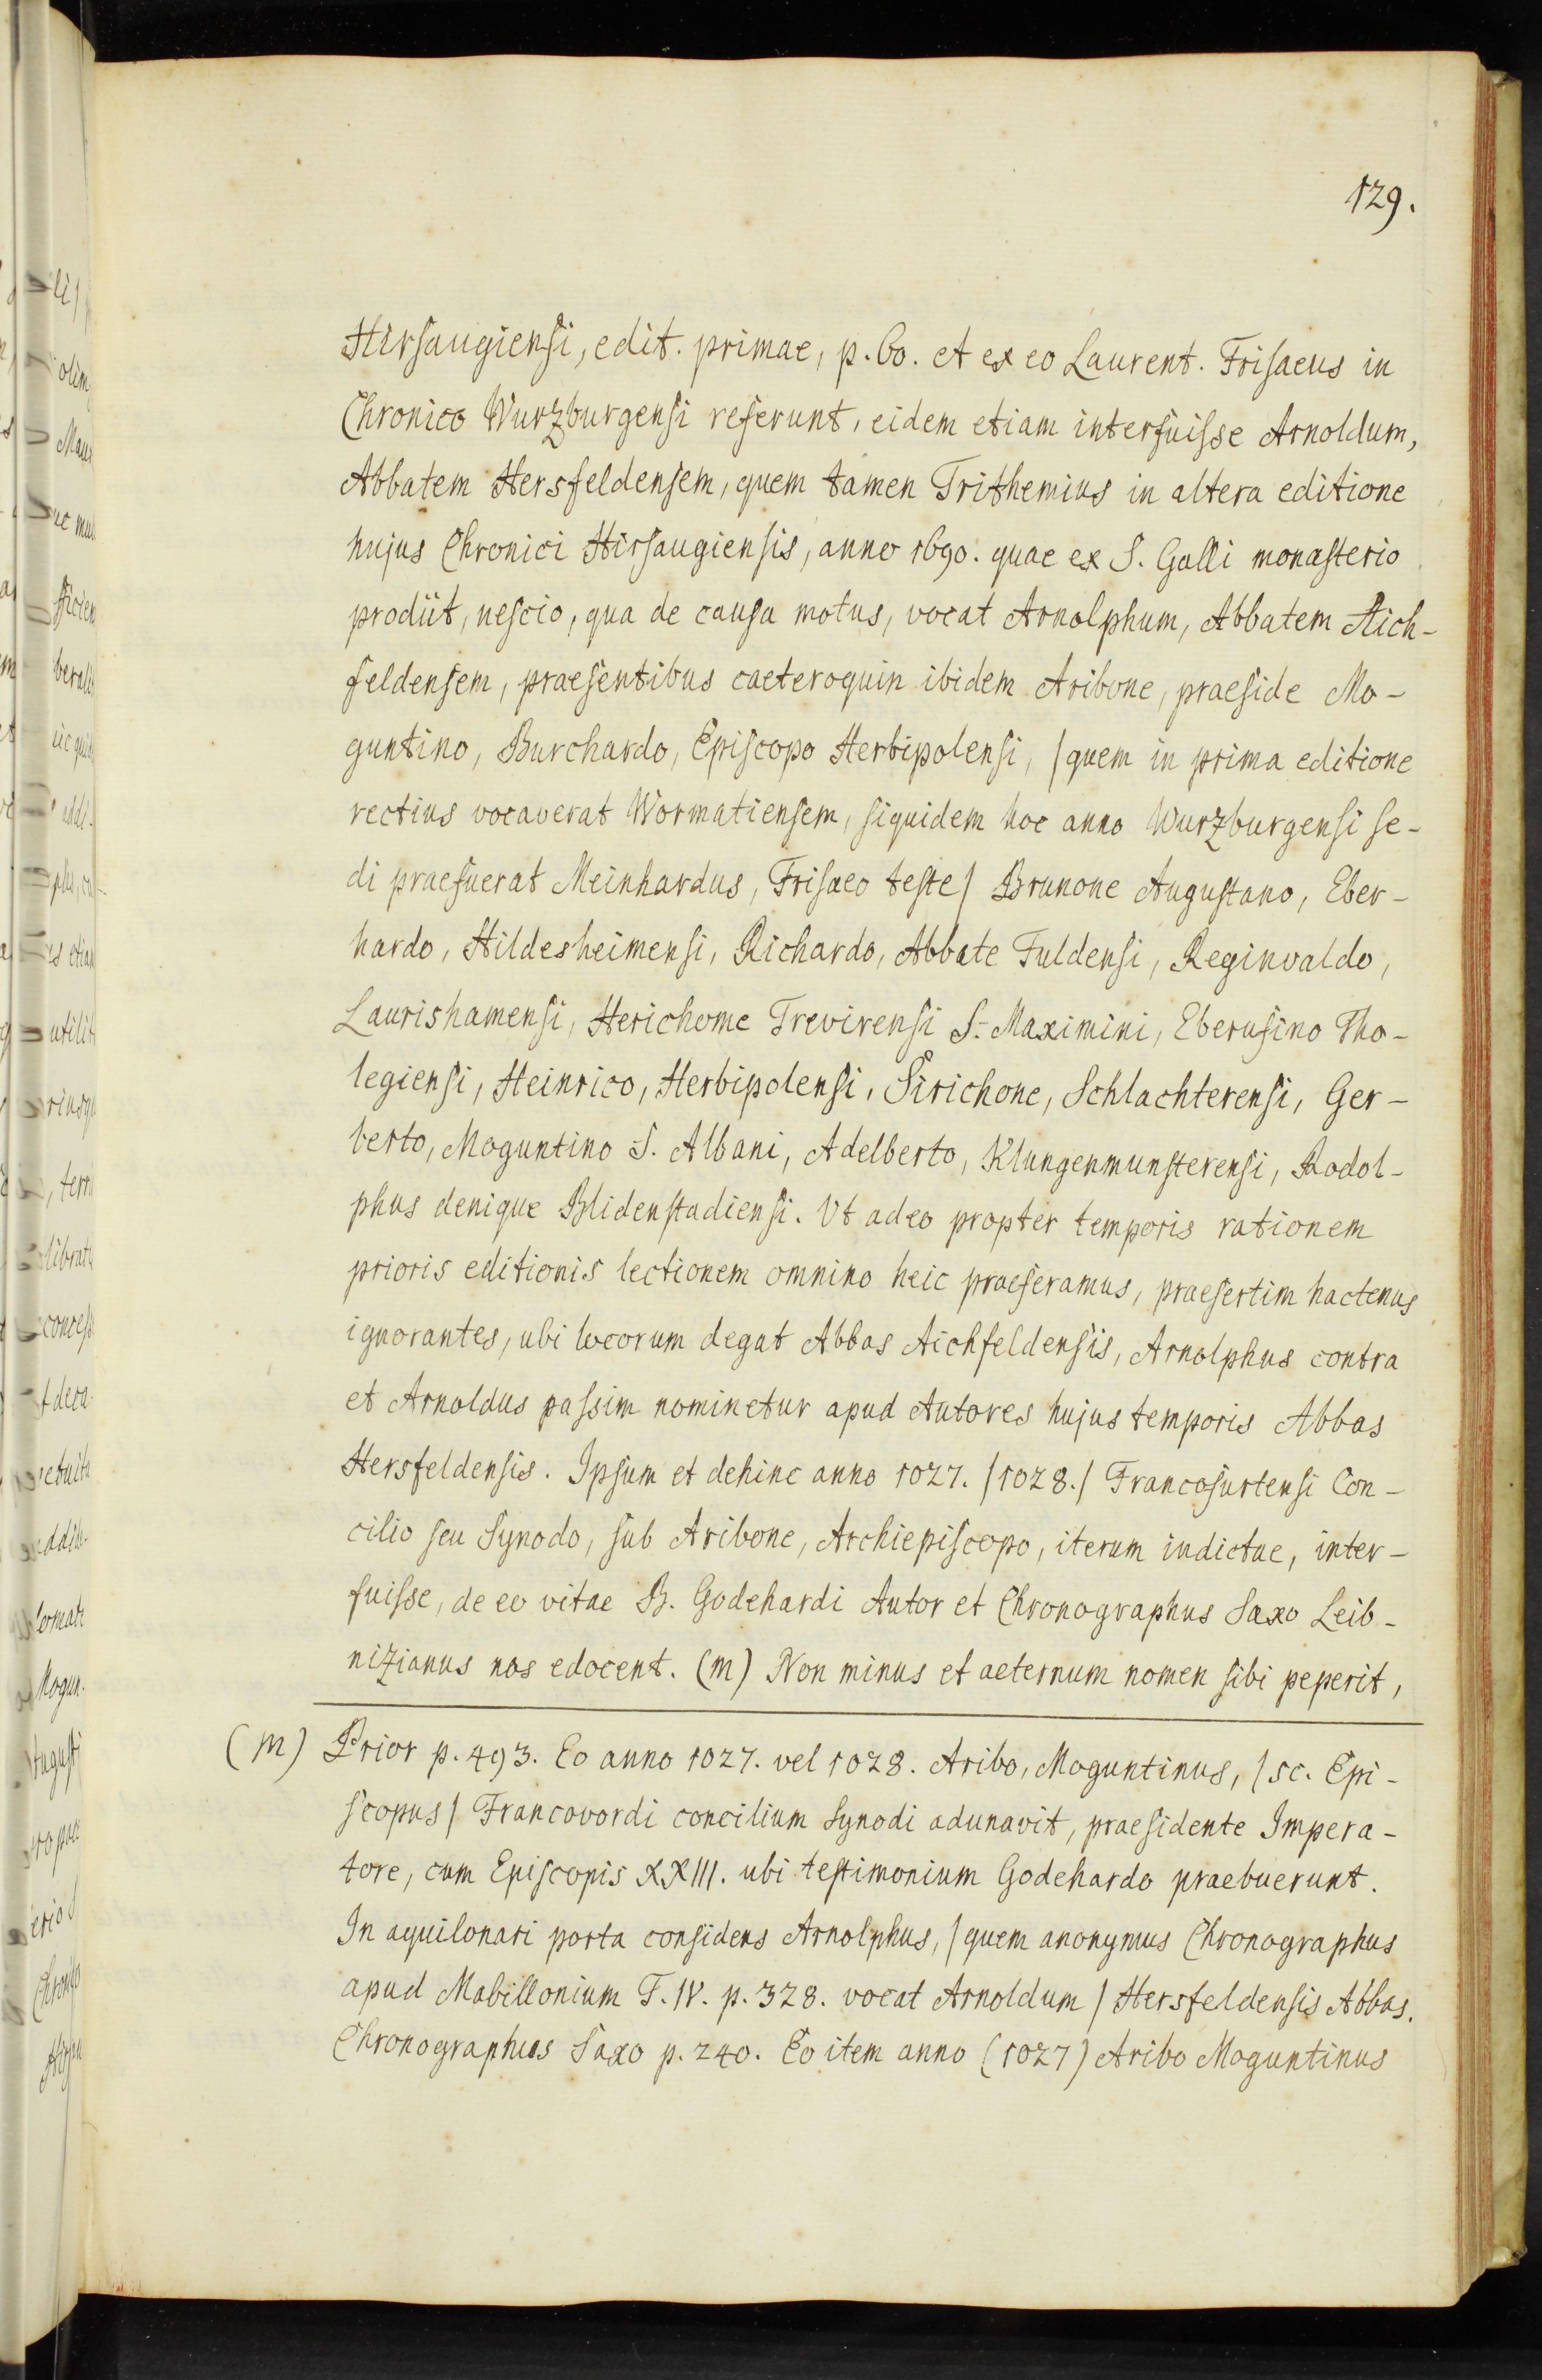 129.
Hirsaugiensi, edit. primae, p. 60. et ex eo Laurent. Frisaeus in
Chronico Wurzburgensi referunt, eidem etiam interfuisse Arnoldum,
Abbatem Hersfeldensem, quem tamen Trithemius in altera editione
hujus Chronici Hirsaugiensis, anno 1690. quae ex S. Galli monasterio
prodiit, nescio, qua de causa motus, vocat Arnolphum, Abbatem Aich-
feldensem, praesentibus caeteroquin ibidem Aribone, praeside Mo-
guntino, Burchardo, Episcopo Herbipolensi, /quem in prima editione
rectius vocaverat Wormatiensem, siquidem hoc anno Wurzburgensi se-
di praefuerat Meinhardus, Frisaeo teste/ Brunone Augustano, Eber-
hardo, Hildesheimensi, Richardo, Abbate Fuldensi, Reginvaldo,
Laurishamensi, Herichome Trevirensi S. Maximini, Eberusino Tho-
legiensi, Heinrico, Herbipolensi, Sirichone, Schlachterensi, Ger-
berto, Moguntino S. Albani, Adelberto, Klungenmunsterensi, Rodol-
phus denique Blidenstadiensi. Ut adeo propter temporis rationem
prioris editionis lectionem omnino heic praeferamus, praesertim hactenus
ignorantes, ubi locorum degat Abbas Aichfeldensis, Arnolphus contra
et Arnoldus passim nominetur apud Autores hujus temporis Abbas
Hersfeldensis. Ipsum et dehinc anno 1027. /1028./ Francofurtensi Con-
cilio seu Synodo, sub Aribone, Archiepiscopo, iterum indictae, inter-
fuisse, de eo vitae B. Godehardi Autor et Chronographus Saxo Leib-
nizianus nos edocent. (m) Non minus et aeternum nomen sibi peperit,
(m) Prior p. 493. Eo anno 1027. vel 1028. Aribo, Moguntinus, /sc. Epi-
scopus/ Francovordi concilium Synodi adunavit, praesidente Impera-
tore, cum Episcopis XXIII. ubi testimonium Godehardo praebuerunt.
In aquilonari porta considens Arnolphus, /quem anonymus Chronographus
apud Mabillonium T. IV. p. 328. vocat Arnoldum / Hersfeldensis Abbas.
Chronographus Saxo p. 240. Eo item anno (1027) Aribo Moguntinus